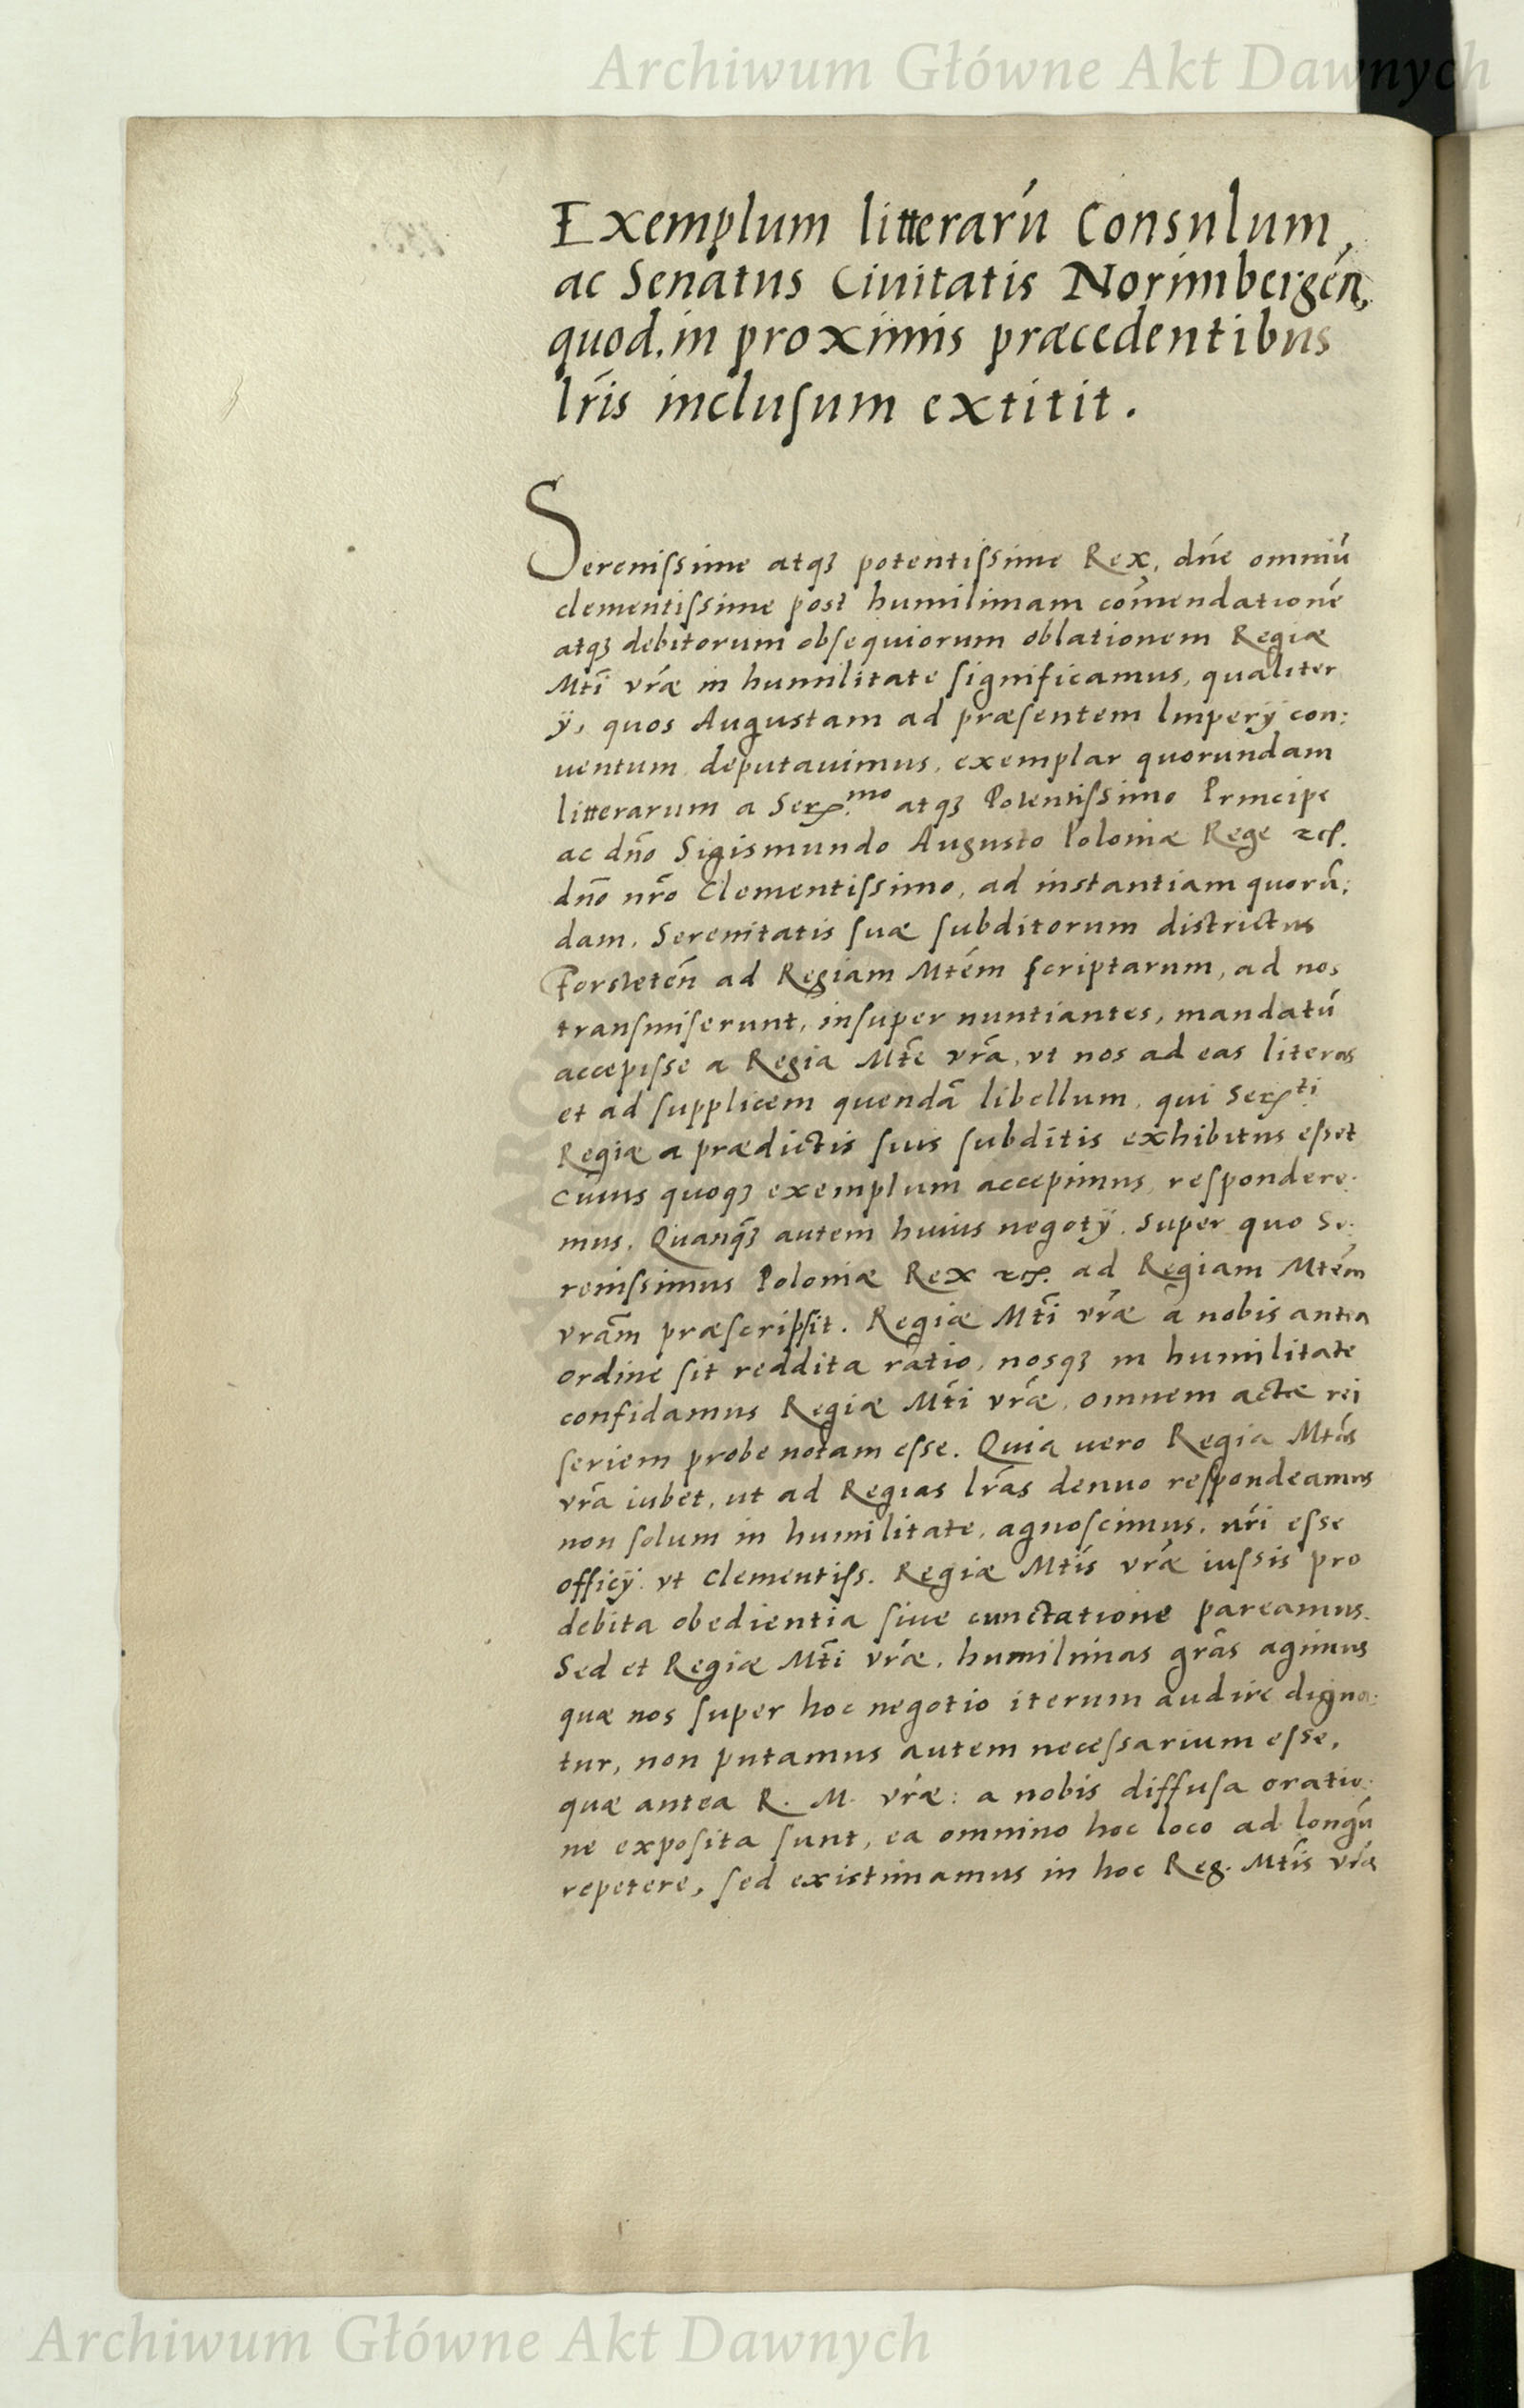 Archiwum Główne Akt Dawnych
Exemplum litterarū Consulum,
ac Senatus Ciuitatis Norimbergēn,
quod, in proximis præcedentibus
lr̄is inclusum extitit.
Serenissime atqꝫ potentissime Rex, dn̄e omniū
clementissime post humilimam com̄endationē
atqꝫ debitorum obsequiorum oblationem Regiæ
Mtī vr̄æ in humilitate significamus, qualiter
ÿ, quos Augustam ad præsentem Imperÿ con:
uentum deputauimus, exemplar quorundam
litterarum a Ser.mo atqꝫ Potentissimo Principe
ac dn̄o Sigismundo Augusto Poloniæ Rege etc.
dn̄o nr̄o Clementissimo, ad instantiam quorū:
dam, Serenitatis suæ subditorum districtus
ad Regiam Mtēm scriptarum, ad nos
transmiserunt, insuper nuntiantes, mandatū
accepisse a Regia Mtē vr̄a, vt nos ad eas literas
et ad supplicem quendā libellum, qui Ser.ti
Regiæ a prædictis suis subditis exhibitus esset
cuius quoqꝫ exemplum accepimus, respondere:
mus. Quanqꝫ̄ autem huius negotÿ, super quo Se:
renissimus Poloniæ Rex etc. ad Regiam Mtēm
vrām præscripsit. Regiæ Mtī vr̄æ a nobis antea
ordine sit reddita ratio, nosqꝫ in humilitate
confidamus Regiæ Mtī vr̄æ, omnem actæ rei
seriem probe notam esse. Quia uero Regia Mtās
vr̄a iubet, ut ad Regias lr̄as denuo respondeamus
non solum in humilitate, agnoscimus, nr̄i esse
officÿ vt Clementiss. Regiæ Mtīs vr̄æ iussis pro
debita obedientia siue cunctatione pareamus.
Sed et Regiæ Mtī vr̄æ, humilimas grās agimus
quæ nos super hoc negotio iterum audire digna:
tur, non putamus autem necessarium esse,
quæ antea R. M. vr̄æ: a nobis diffusa oratio:
ne exposita sunt, ea omnino hoc loco ad longū
repetere, sed existimamus in hoc Reg. Mtīs vr̄æ
Archiwum Główne Akt Dawnych